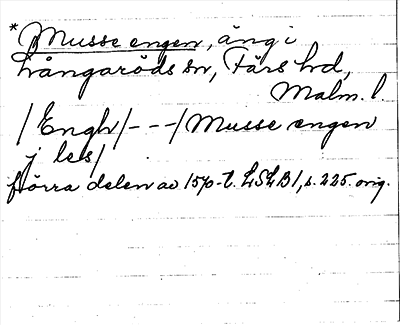 *Musse engen, äng i
Långaröds sn, Färs hd,
Malm. l.
/Engh/---/Musse engen
j les/
förra delen av 1570-t. LSLB1, s. 225. orig.